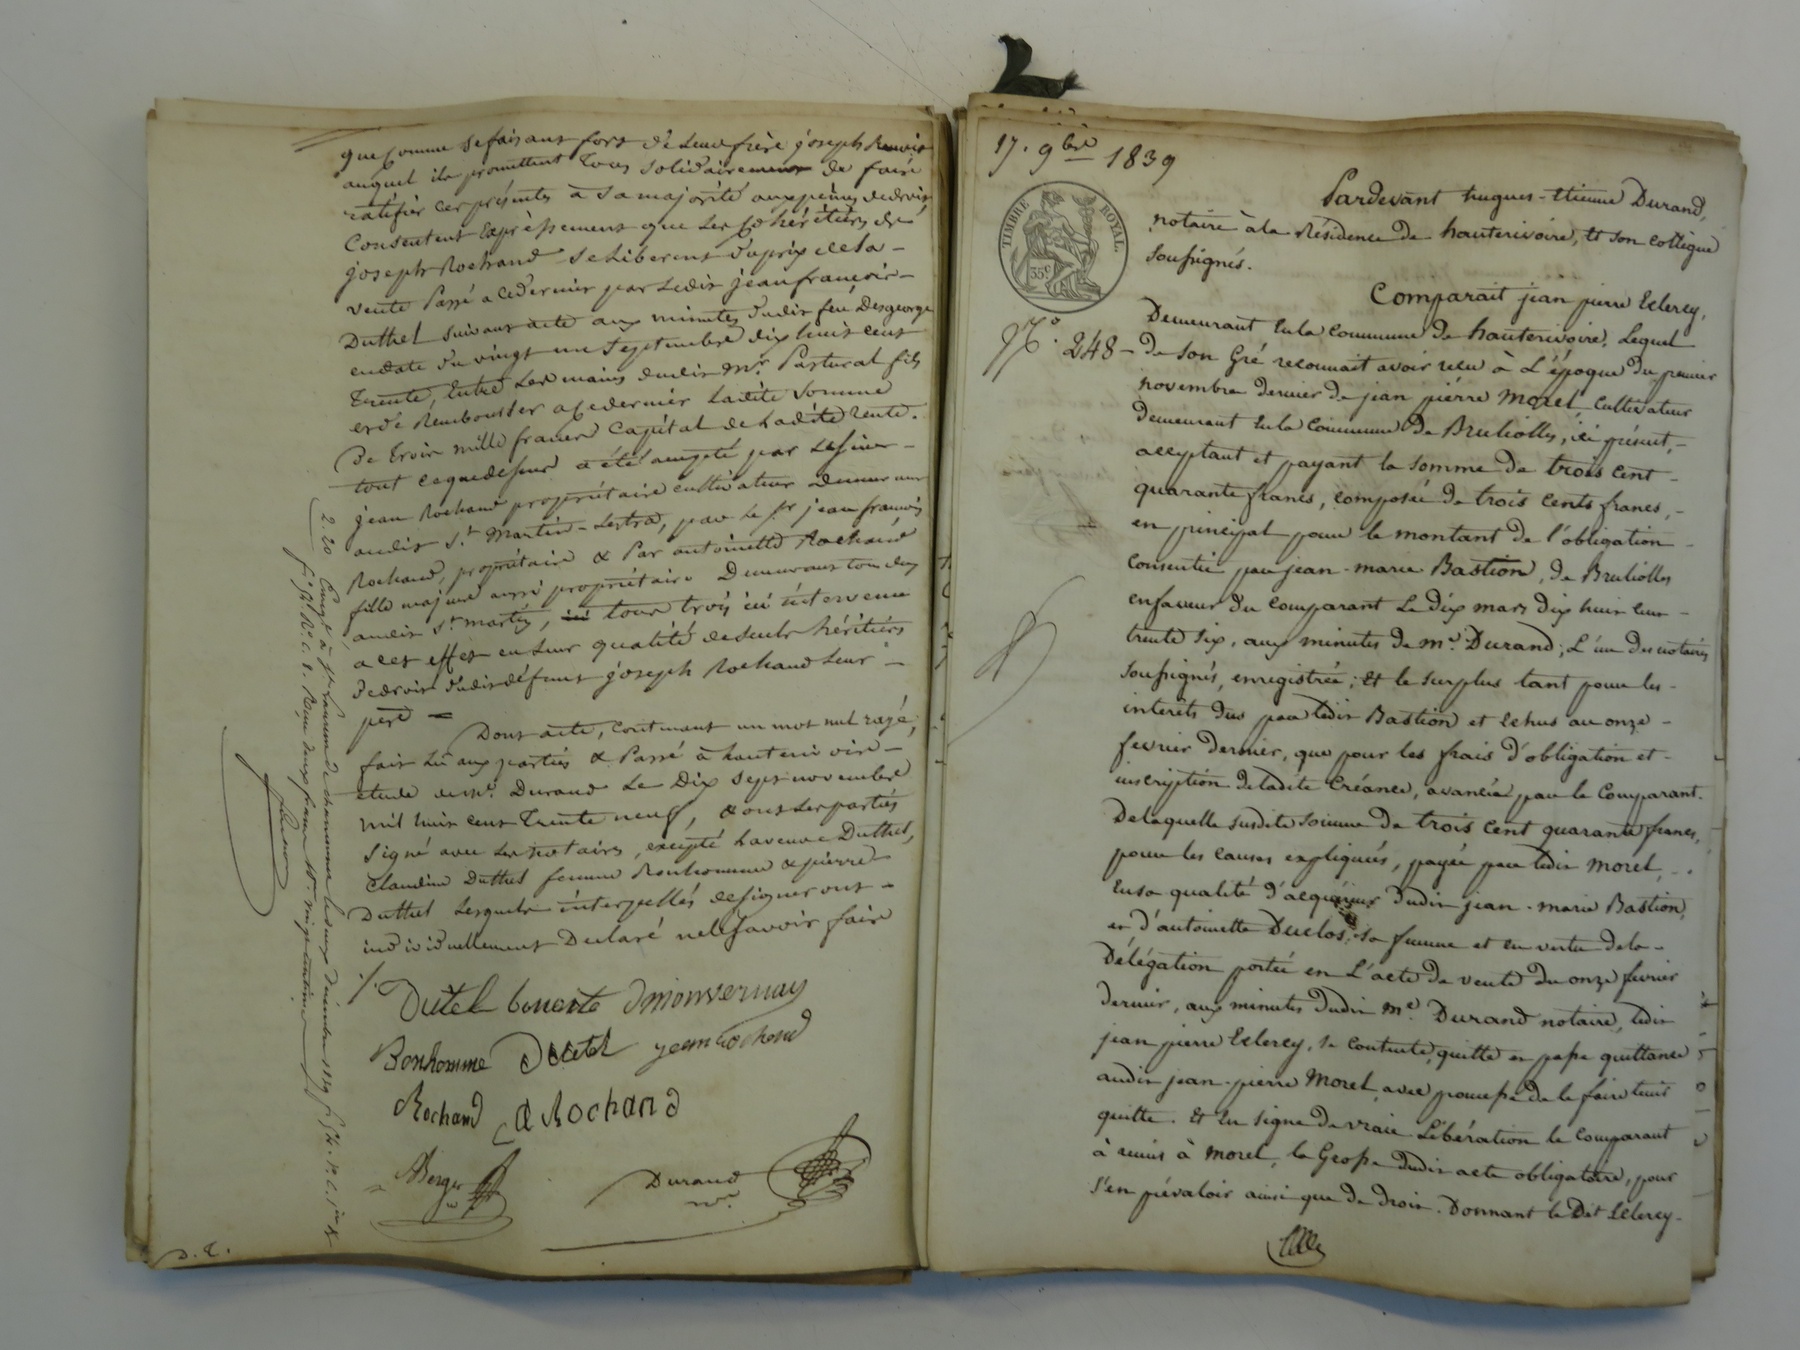 que comme se faisant fort de leur frère joseph Benoit
auquel ils promettent tous solidairement de faire
ratifier ces présentes à sa majorité aux peines de droit
Consentent Expressement que les Co héritiers de
joseph Rochand se Libèrent du prix de la -
vente Passé a ce dernier par ledit jean francois -
Duthel suivant acte aux minutes dudit feu Desgeorge
en date du vingt un Septembre dix huit cent
Trente, Entre les mains dudit Mr. Pastural fils
et de Rembourser a ce dernier ladite somme
De trois mille francs Capital de ladite rente.
tout ce que dessus a été accepté par les sieur -
jean Rochand propriétaire cultivateur Demeurant
audit St. Martin - Lestra, par le sr jean francois
Rochand, propriétaire & Par antoinette Rochand
fille majeure aussi propriétaire Demeurant tous deux
audit St. martin, tous trois ici intervenu
a cet effet en leur qualité de seuls héritiers
de droit dudit défunt joseph Rochand leur -
père =
Dont acte, Contenant un mot nul rayé,
fait Lu aux parties & Passé à hauterivoire -
étude de Me. Durand Le Dix sept novembre
mil huit cent Trente neuf, & ont les parties
signé avec les notaires, excepté la veuve Duthel,
Claudine Duthel femme Bonhomme & pierre
Duthel lesquels interpellés de signer ont -
individuellement Déclaré ne le savoir fair
./.
Dutel benoite dmonvernay
Bonhomme Dutel jean rochand
Rochand A Rochand
Berger
Durand
nre.
D. C.
2. 20
17. 9bre 1839
TIMBRE ROYAL.
35c
Pardevant hugues-etienne Durand,
notaire à la Résidence de hauterivoire, et son collègue
soussignés.
Comparait jean pierre Leclercy,
No. 248 -
Demeurant en la commune de hauterivoire, Lequel
de son Gré reconnait avoir reçu à L'époque du premier
novembre dernier de jean pierre Morel, Cultivateur
demeurant en la Commune de Brulliolles, ici présent, -
acceptant et payant la somme de trois cent -
quarante francs, composée de trois cents francs, -
en principal pour le montant de l'obligation -
Consentie par jean-marie Bastion, de Brulliolles
en faveur du comparant Le dix mars dix huit cent -
trente six, aux minutes de me. Durand; L'un des notaires
soussignés, enregistrée; Et le surplus tant pour les -
intérêts dus par ledit Bastion et échus au onze -
fevrier dernier, que pour les frais d'obligation et -
inscription de ladite Créance, avancés par le Comparant.
De laquelle susdite somme de trois cent quarante francs,
pour les causes expliquées, payée par ledit Morel, -
En sa qualité d'acquéreur dudit jean-marie Bastion,
et d'antoinette Duclos, sa femme et en vertu de la -
Délégation portée en L'acte de vente du onze fevrier
dernier, aux minutes dudit me. Durand notaire, ledit
jean pierre Leclercy, se contente, quitte et passe quittance
audit jean-pierre Morel, avec promesse de le faire tenir
quitte. Et en signe de vraie Libération le comparant
à remis à Morel, la Grosse dudit acte obligatoire, pour
s'en prévaloir ainsi que de droit. Donnant le Dit Leclercy -